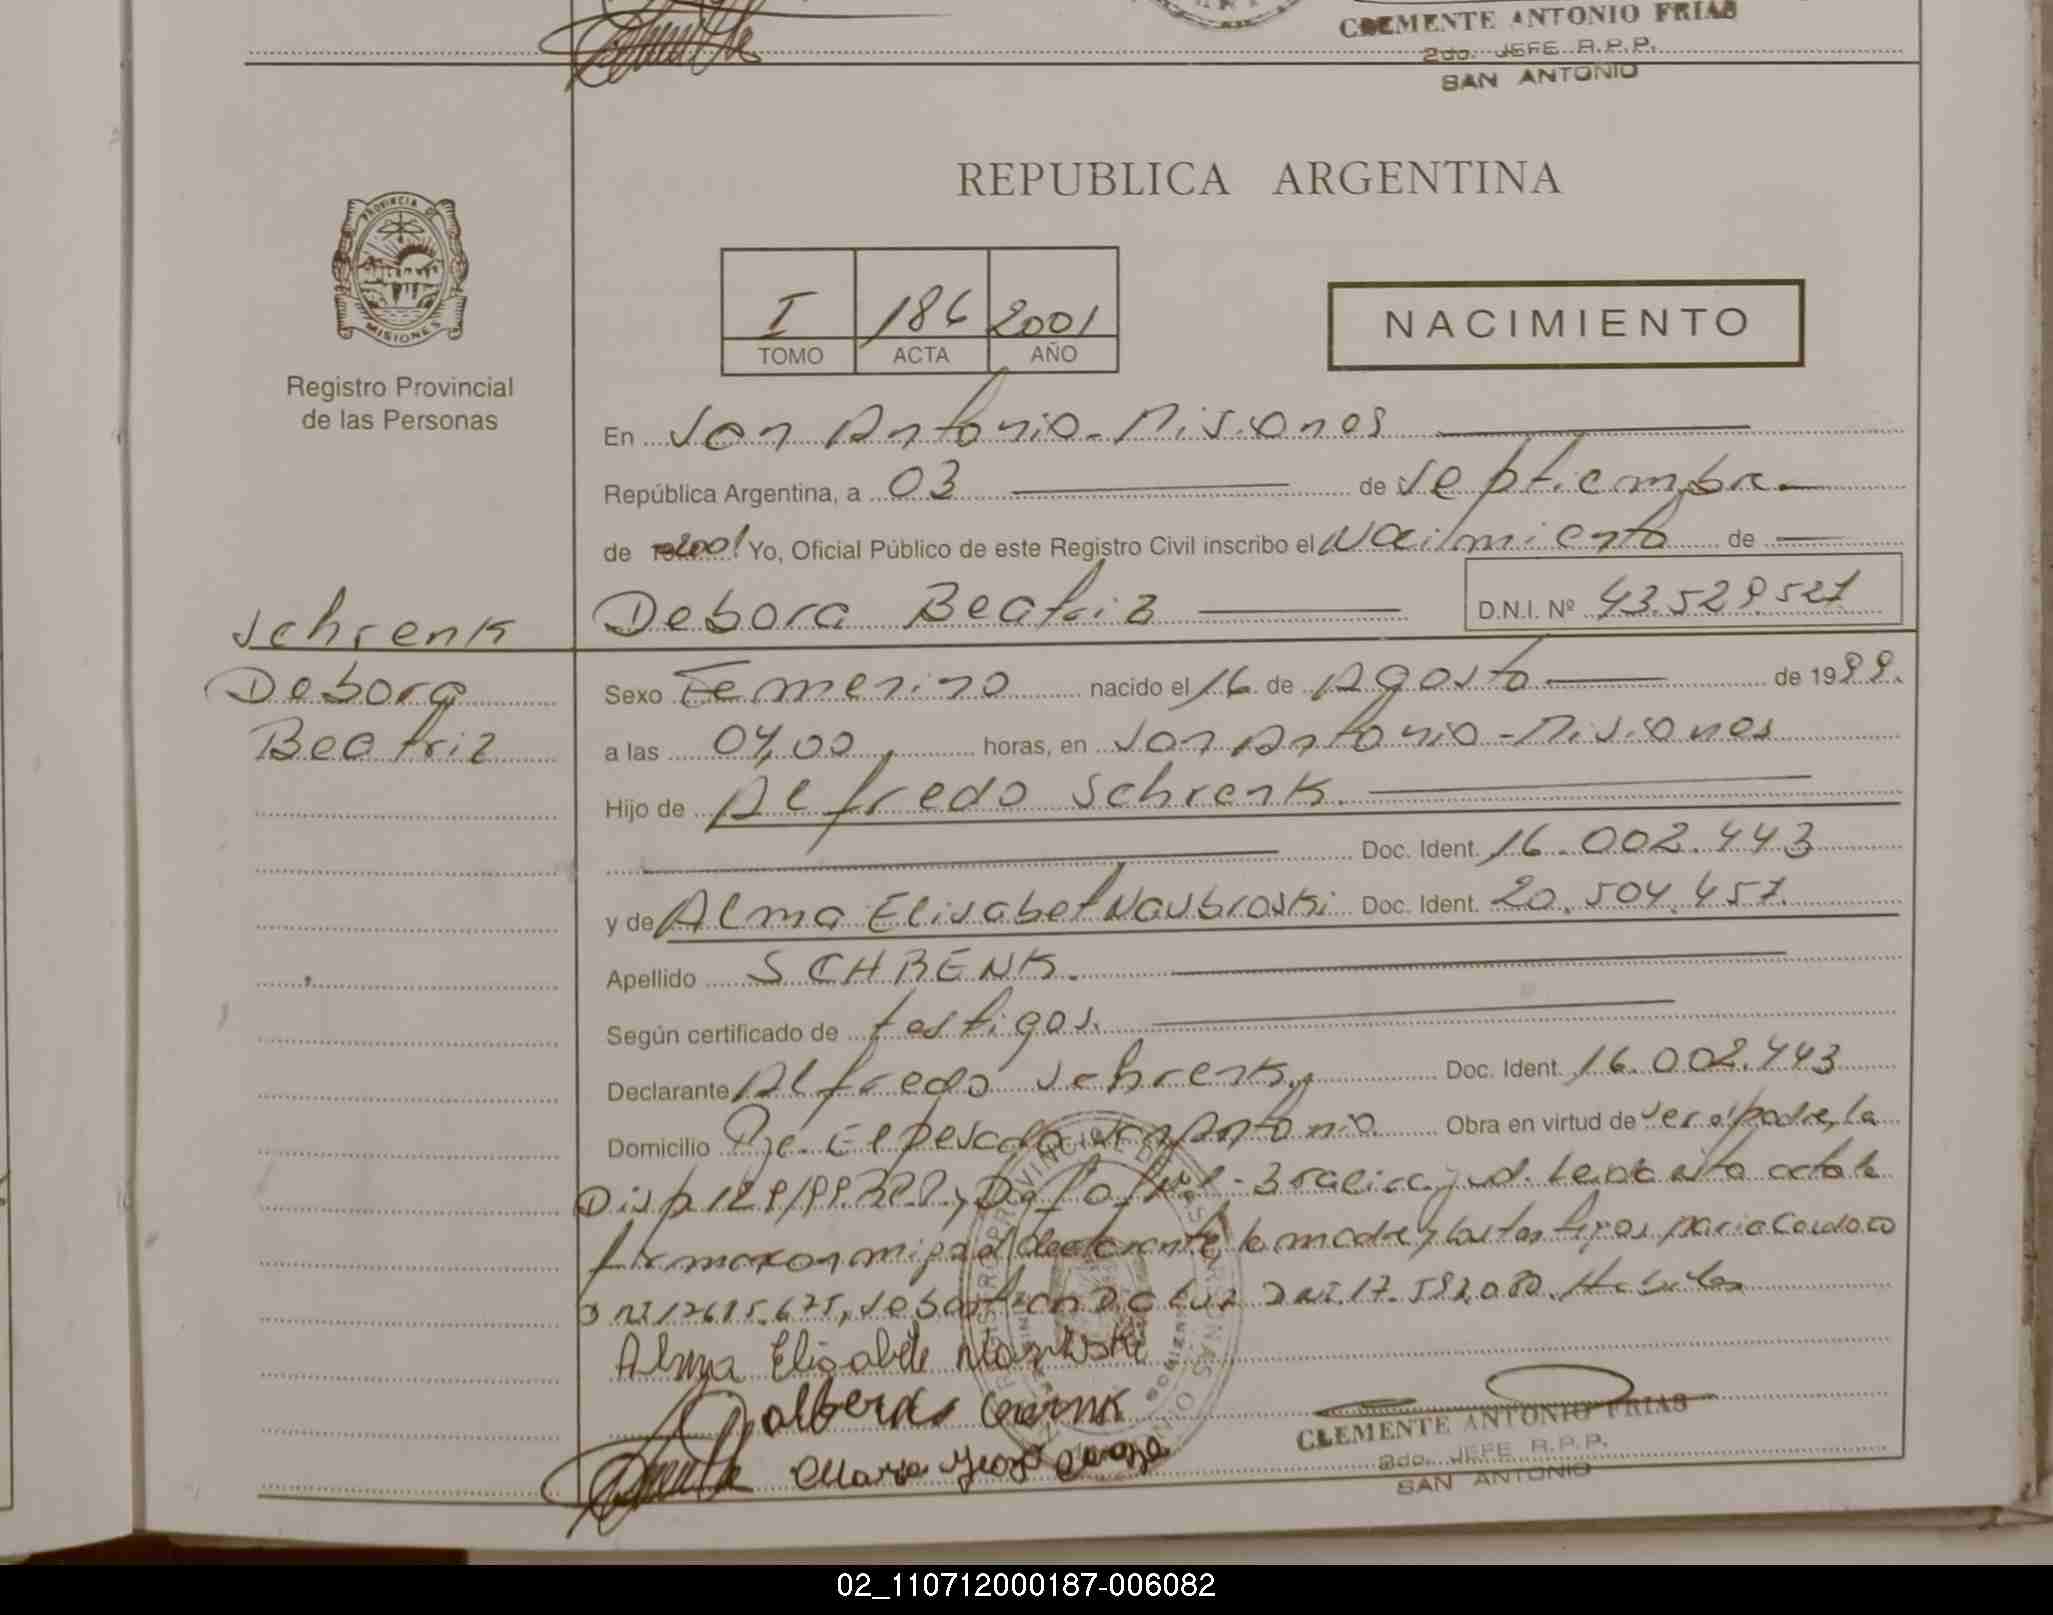 CLEMENTE ANTONIO FRIAS
2do. JEFE R.P.P.
SAN ANTONIO
REPUBLICA ARGENTINA
PROVINCIA DE
MISIONES
Registro Provincial
de las Personas
I 186 2001
TOMO ACTA AÑO
NACIMIENTO
En San Antonio - Misiones
República Argentina, a 03 de septiembre
de 2001 Yo, Oficial Público de este Registro Civil inscribo el Nacimiento de
Debora Beatriz D.N.I. Nº 43.529.527
Schrenk
Debora
Beatriz
Sexo Femenino nacido el 16 de Agosto de 1999.
a las 04,00 horas, en San Antonio - Misiones
Hijo de Alfredo Schrenk.
Doc. Ident. 16.002.443
y de Alma Elisabet Doc. Ident. 20.504.457.
Apellido SCHRENK.
Según certificado de testigos.
Declarante Alfredo Schrenk, Doc. Ident. 16.002.443
Domicilio Pje. El San Antonio. Obra en virtud de ser el padre, la
Disp. 129/99. R.P.P. y Leida esta acta la
firmaron declarante, la madre y los testigos Maria
Sebastian DNI. 17.582.080. Habiles
Alma
Maria
CLEMENTE ANTONIO FRIAS
2do. JEFE R.P.P.
SAN ANTONIO
02_110712000187-006082